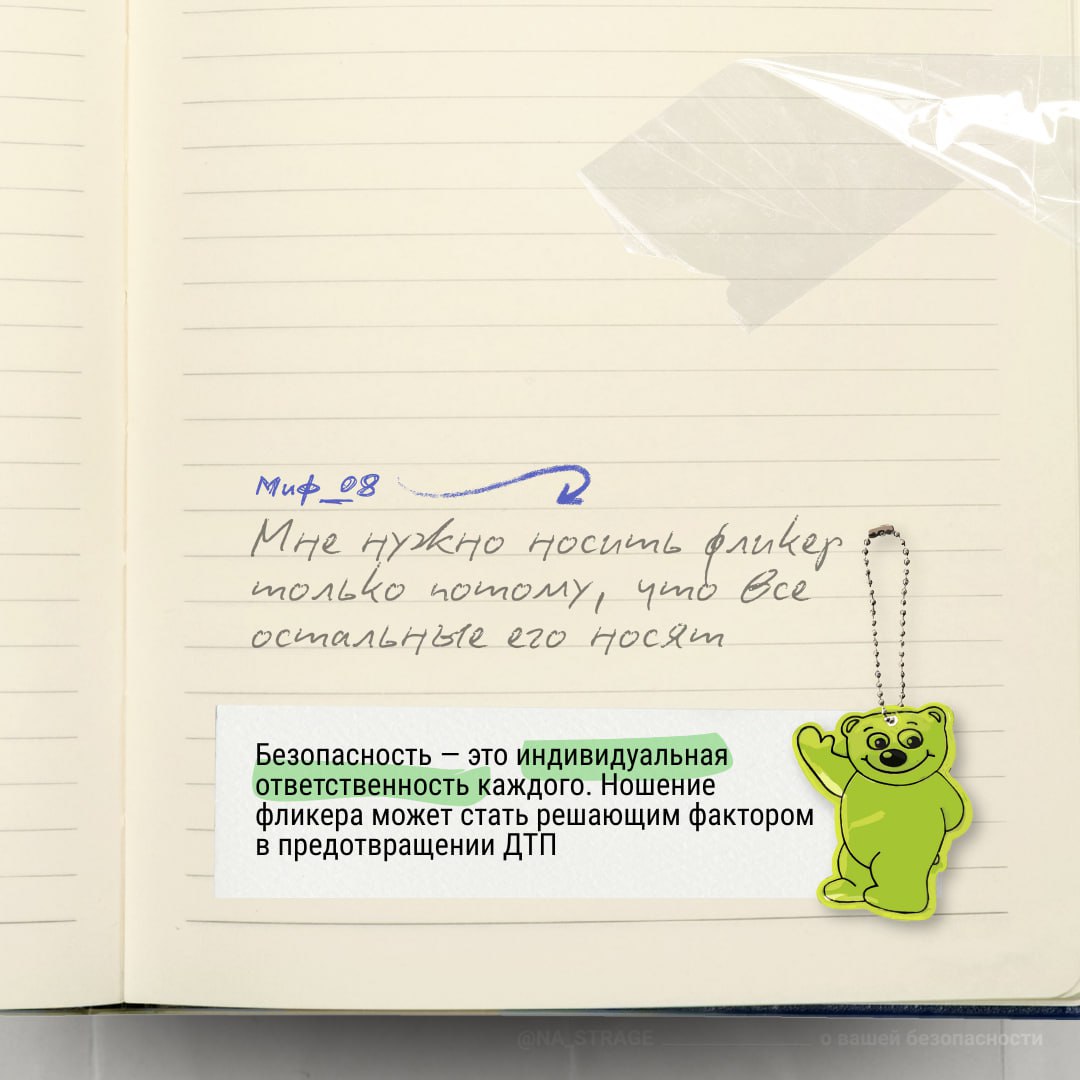 Миф_08
Мне нужно носить фликер
только потому, что все
остальные его носят
Безопасность — это индивидуальная
ответственность каждого. Ношение
фликера может стать решающим фактором
в предотвращении ДТП
@NA_STRAGE о вашей безопасности